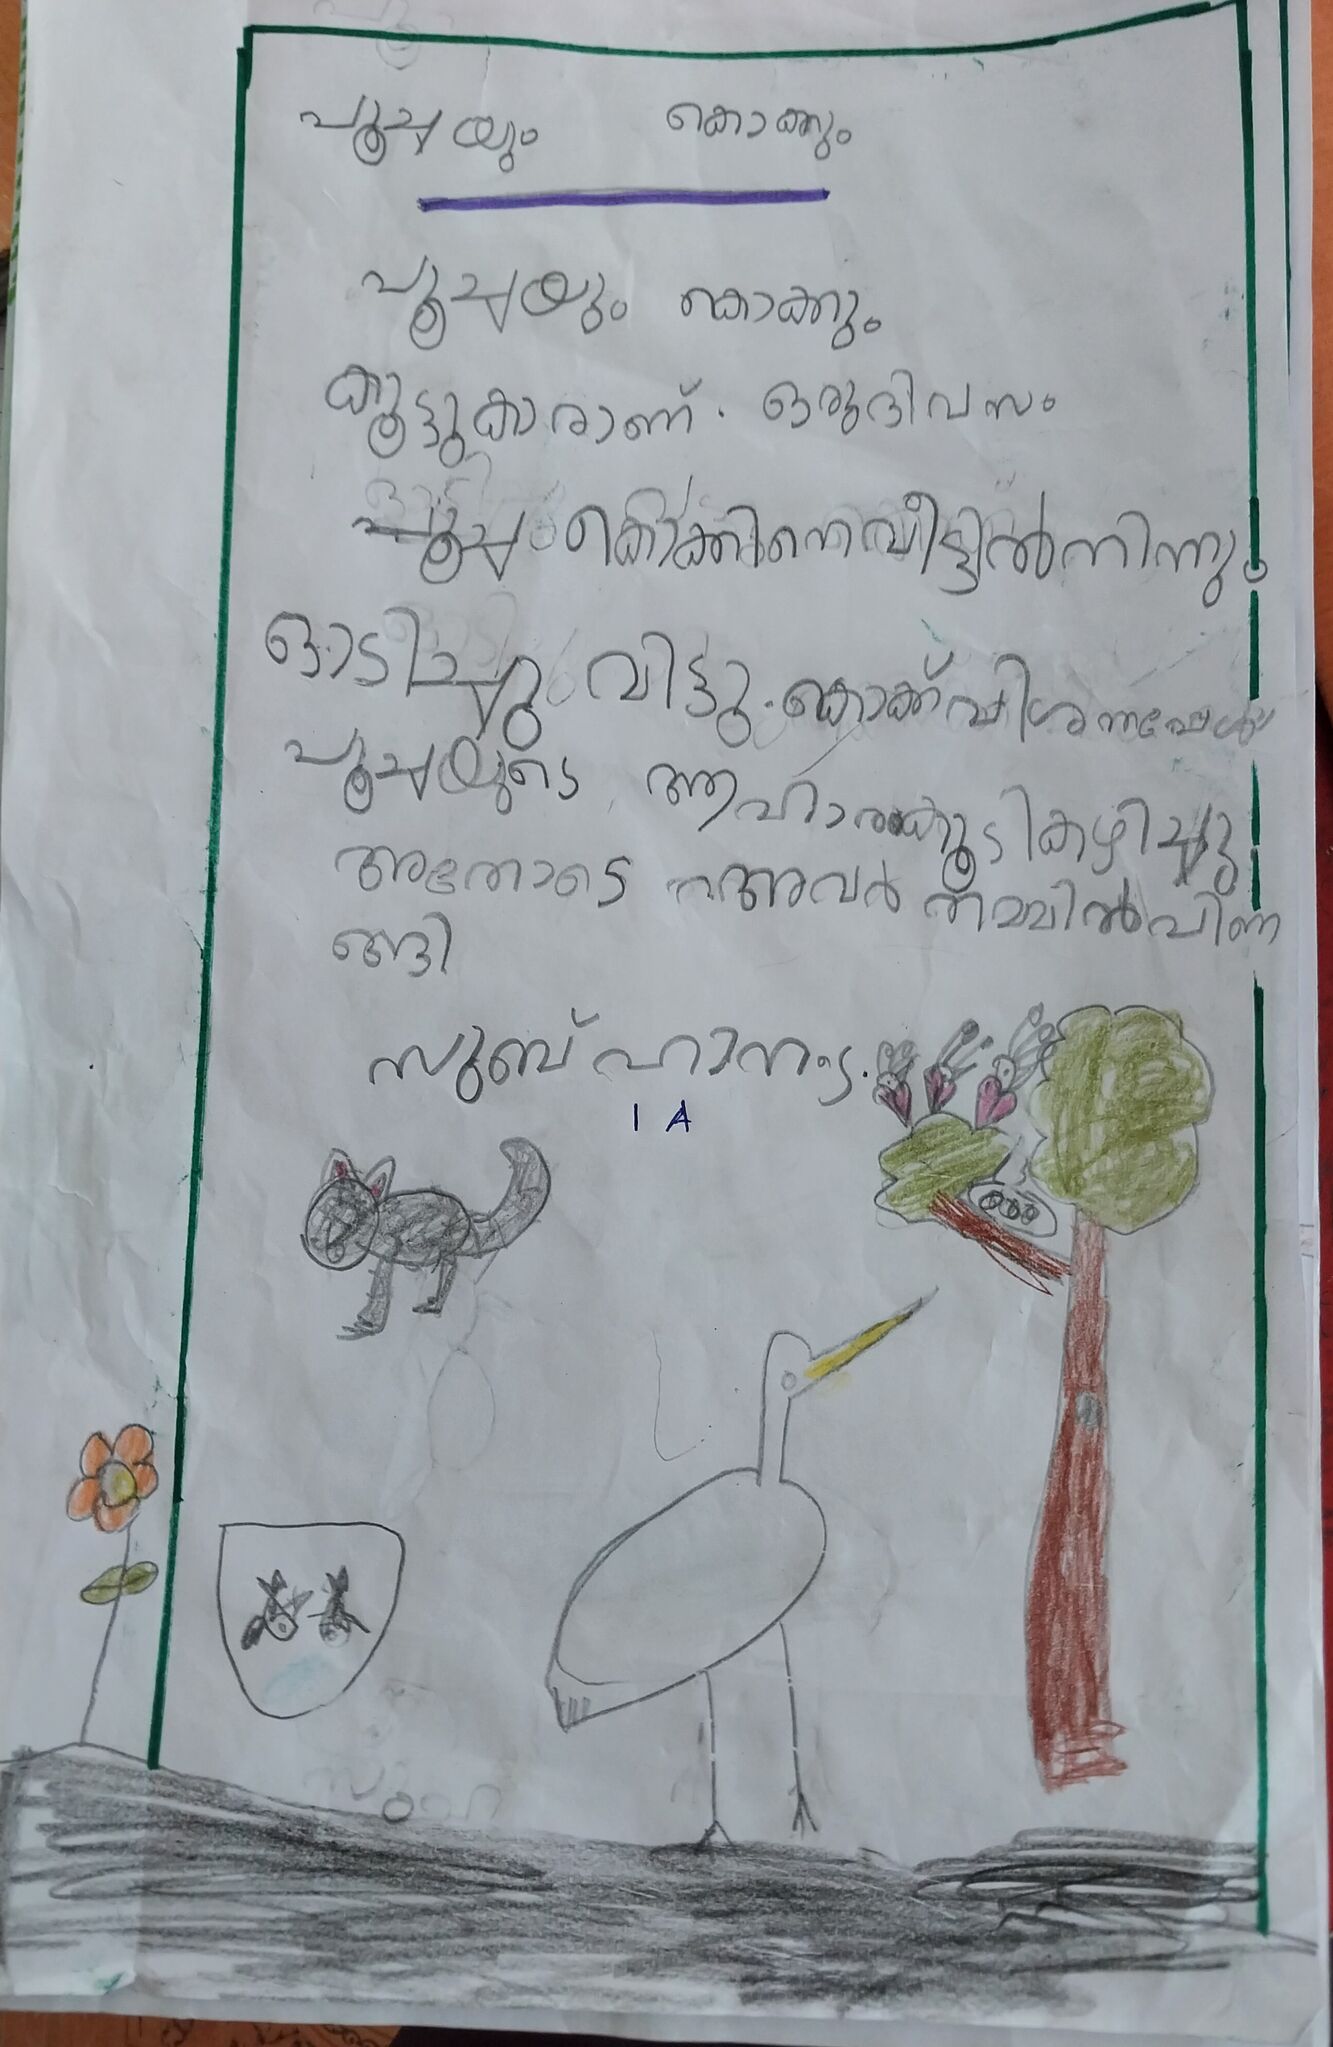 പൂച്ചയും കൊക്കും
പൂച്ചയും കൊക്കും
കൂട്ടുകാരാണ്. ഒരുദിവസം
പൂച്ച കൊക്കിനെവീട്ടിൽനിന്നും
ഓടിച്ചു വിട്ടു. കൊക്ക് വിശന്നപ്പോൾ
പൂച്ചയുടെ ആഹാരംകൂടികഴിച്ചു
അതോടെ അവർ തമ്മിൽപിണ
ങ്ങി
സുബ്ഹാന.
I A